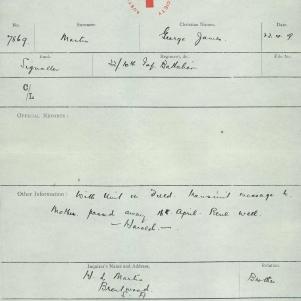 No.
Surname.
Christian Names.
Date.
7869
Martin
George James
22.4.19
Rank.
Regiment, &c.
File No.
Signaller
22/10th Inf. Battalion
C/L
OFFICIAL REPORTS:
Other Information: With Unit in Field. Transmit message to
Mother passed away 16th April. Rene well.
— Harold —
Inquirer's Name and Address,
Relation.
H. L. Martin
Brother
Brentwood
S. A.